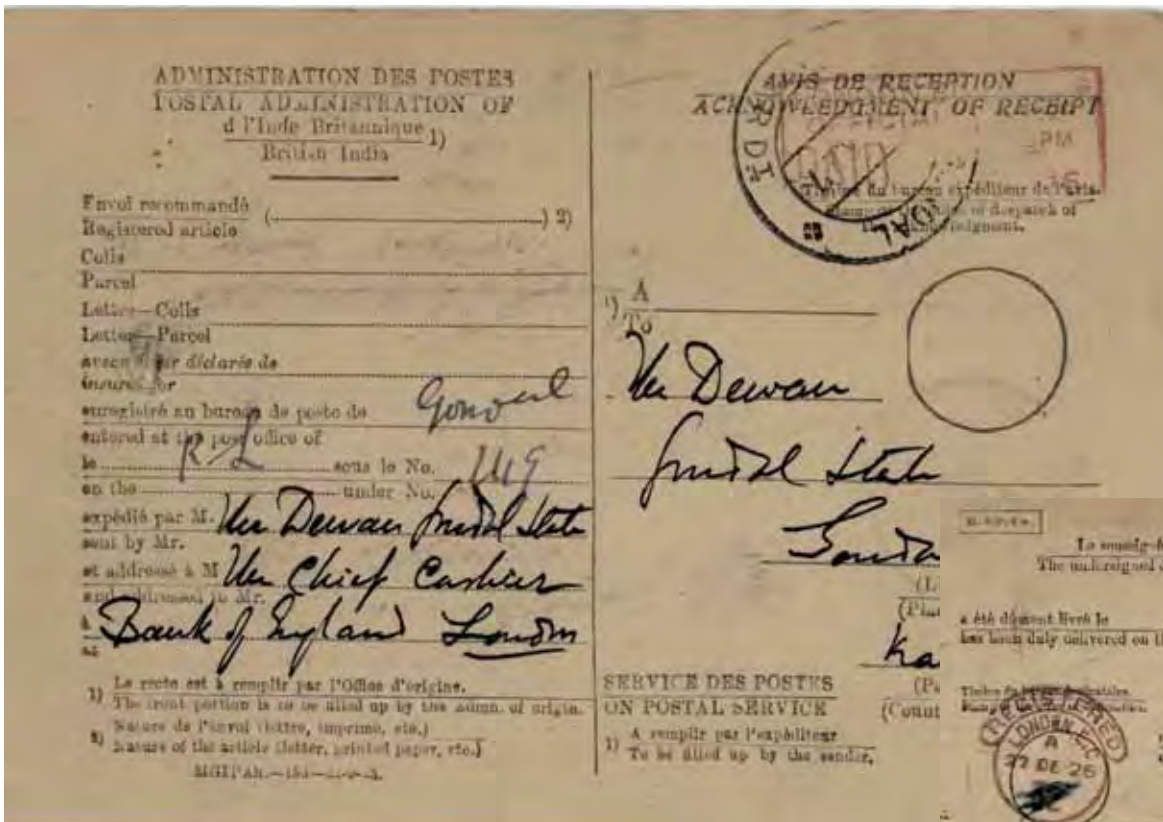 ADMINISTRATION DES POSTES
POSTAL ADMINISTRATION OF
d l'Inde Britannique 1)
British India
Envoi recommandé
Registered article (..........) 2)
Colis
Parcel
Letter—Colis
Letter—Parcel
avec déclarée de
insured for
enregistré au bureau de poste de Gondal
entered at the post office of
le R L sous le No. 149
on the under No.
expédié par M. The Dewan Gondal State
sent by Mr.
et addressé à M The Chief Cashier
and addressed to Mr.
à Bank of England London
at
1) Le recto est à remplir par l'Office d'origine.
The front portion is to be filled up by the admn. of origin.
2) Nature de l'envoi (lettre, imprimé, etc.)
Nature of the article (letter, printed paper, etc.)
AVIS DE RECEPTION
ACKNOWLEDGMENT OF RECEIPT
PM
Timbre du bureau expéditeur de l'avis.
of despatch of
the acknowledgment.
1) A
To
The Dewan
Gondal State
SERVICE DES POSTES
ON POSTAL SERVICE
1) A remplir par l'expéditeur
To be filled up by the sender.
(Count
The undersigned
a été dûment livré le
has been duly delivered on th
REGISTERED
LONDON E.C
A
27 DE 26